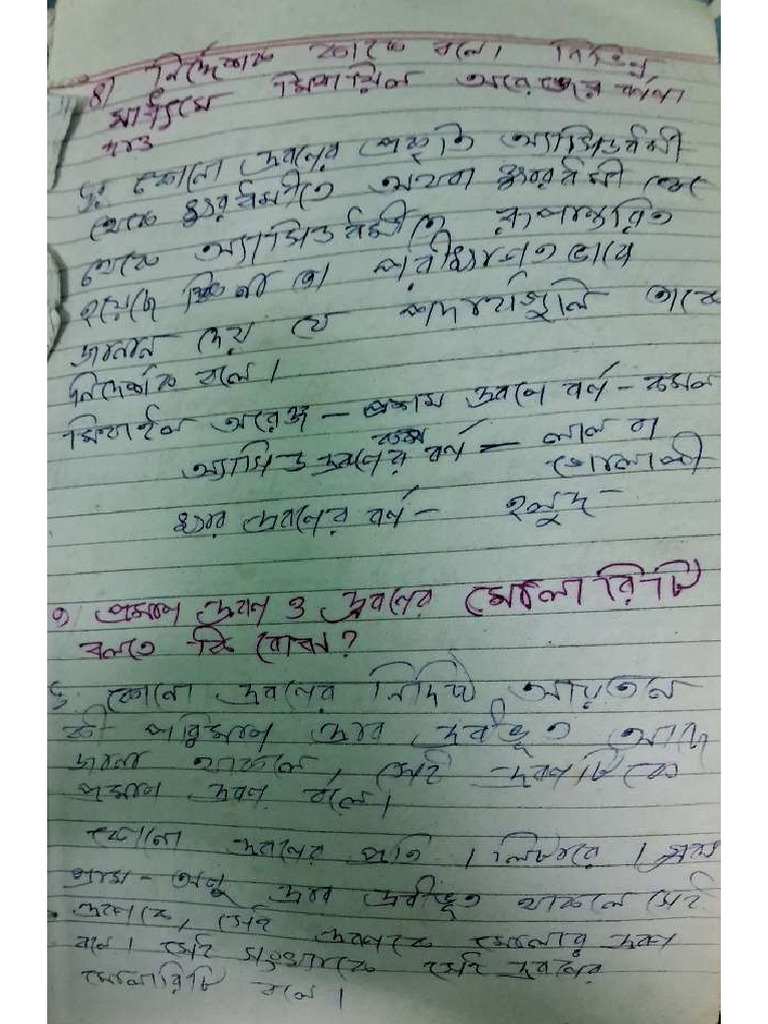 ৪) নির্দেশক কাকে বলে। বিভিন্ন
মাধ্যমে মিথাইল অরেঞ্জের বর্ণ
উঃ কোনো দ্রবণের প্রকৃতি অ্যাসিডধর্মী
থেকে ক্ষারধর্মীতে অথবা ক্ষারধর্মী
থেকে অ্যাসিডধর্মীতে রূপান্তরিত
হয়েছে কিনা তা পরীক্ষাগত ভাবে
জানান দেয় যে পদার্থগুলি তাকে
নির্দেশক বলে।
মিথাইল অরেঞ্জ – প্রশম দ্রবণে বর্ণ – কমলা
অ্যাসিড দ্রবণের বর্ণ – লাল বা
গোলাপী
ক্ষার দ্রবণের বর্ণ – হলুদ
৫) প্রমাণ দ্রবণ ও দ্রবণের মোলারিটি
বলতে কি বোঝ?
উঃ কোনো দ্রবণের নির্দিষ্ট আয়তনে
কী পরিমাণ দ্রাব দ্রবীভূত আছে
জানা থাকলে, সেই দ্রবণটিকে
প্রমাণ দ্রবণ বলে।
কোনো দ্রবণের প্রতি 1 লিটারে 1
গ্রাম-অণু দ্রাব দ্রবীভূত থাকলে সেই
দ্রবণকে, সেই দ্রবণকে মোলার দ্রবণ
বলে। সেই সংখ্যাকে সেই দ্রবণের
মোলারিটি বলে।